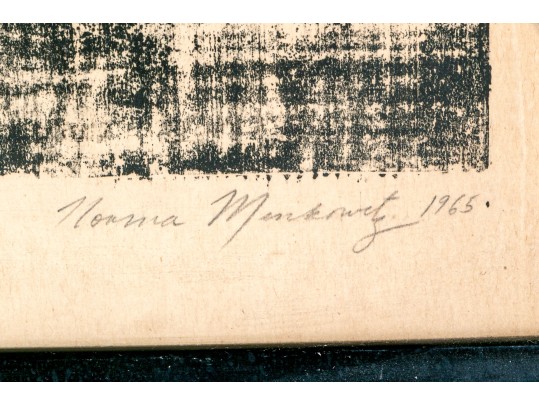 Norma Minkowitz 1965.